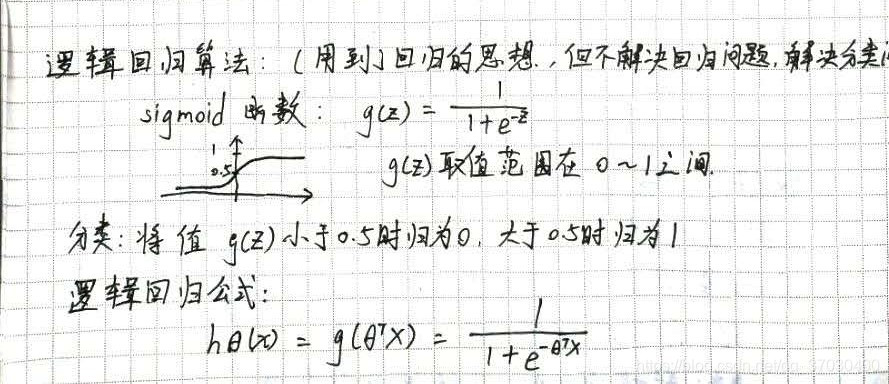 逻辑回归算法：（用到）回归的思想，但不解决回归问题，解决分类
sigmoid 函数： g(z) = 1 / (1 + e^{-z})
1
0.5
g(z)取值范围在 0 ~ 1之间.
分类：将值 g(z) 小于0.5时归为0，大于0.5时归为1
逻辑回归公式：
hθ(x) = g(θ^T X) = 1 / (1 + e^{-θ^T X})